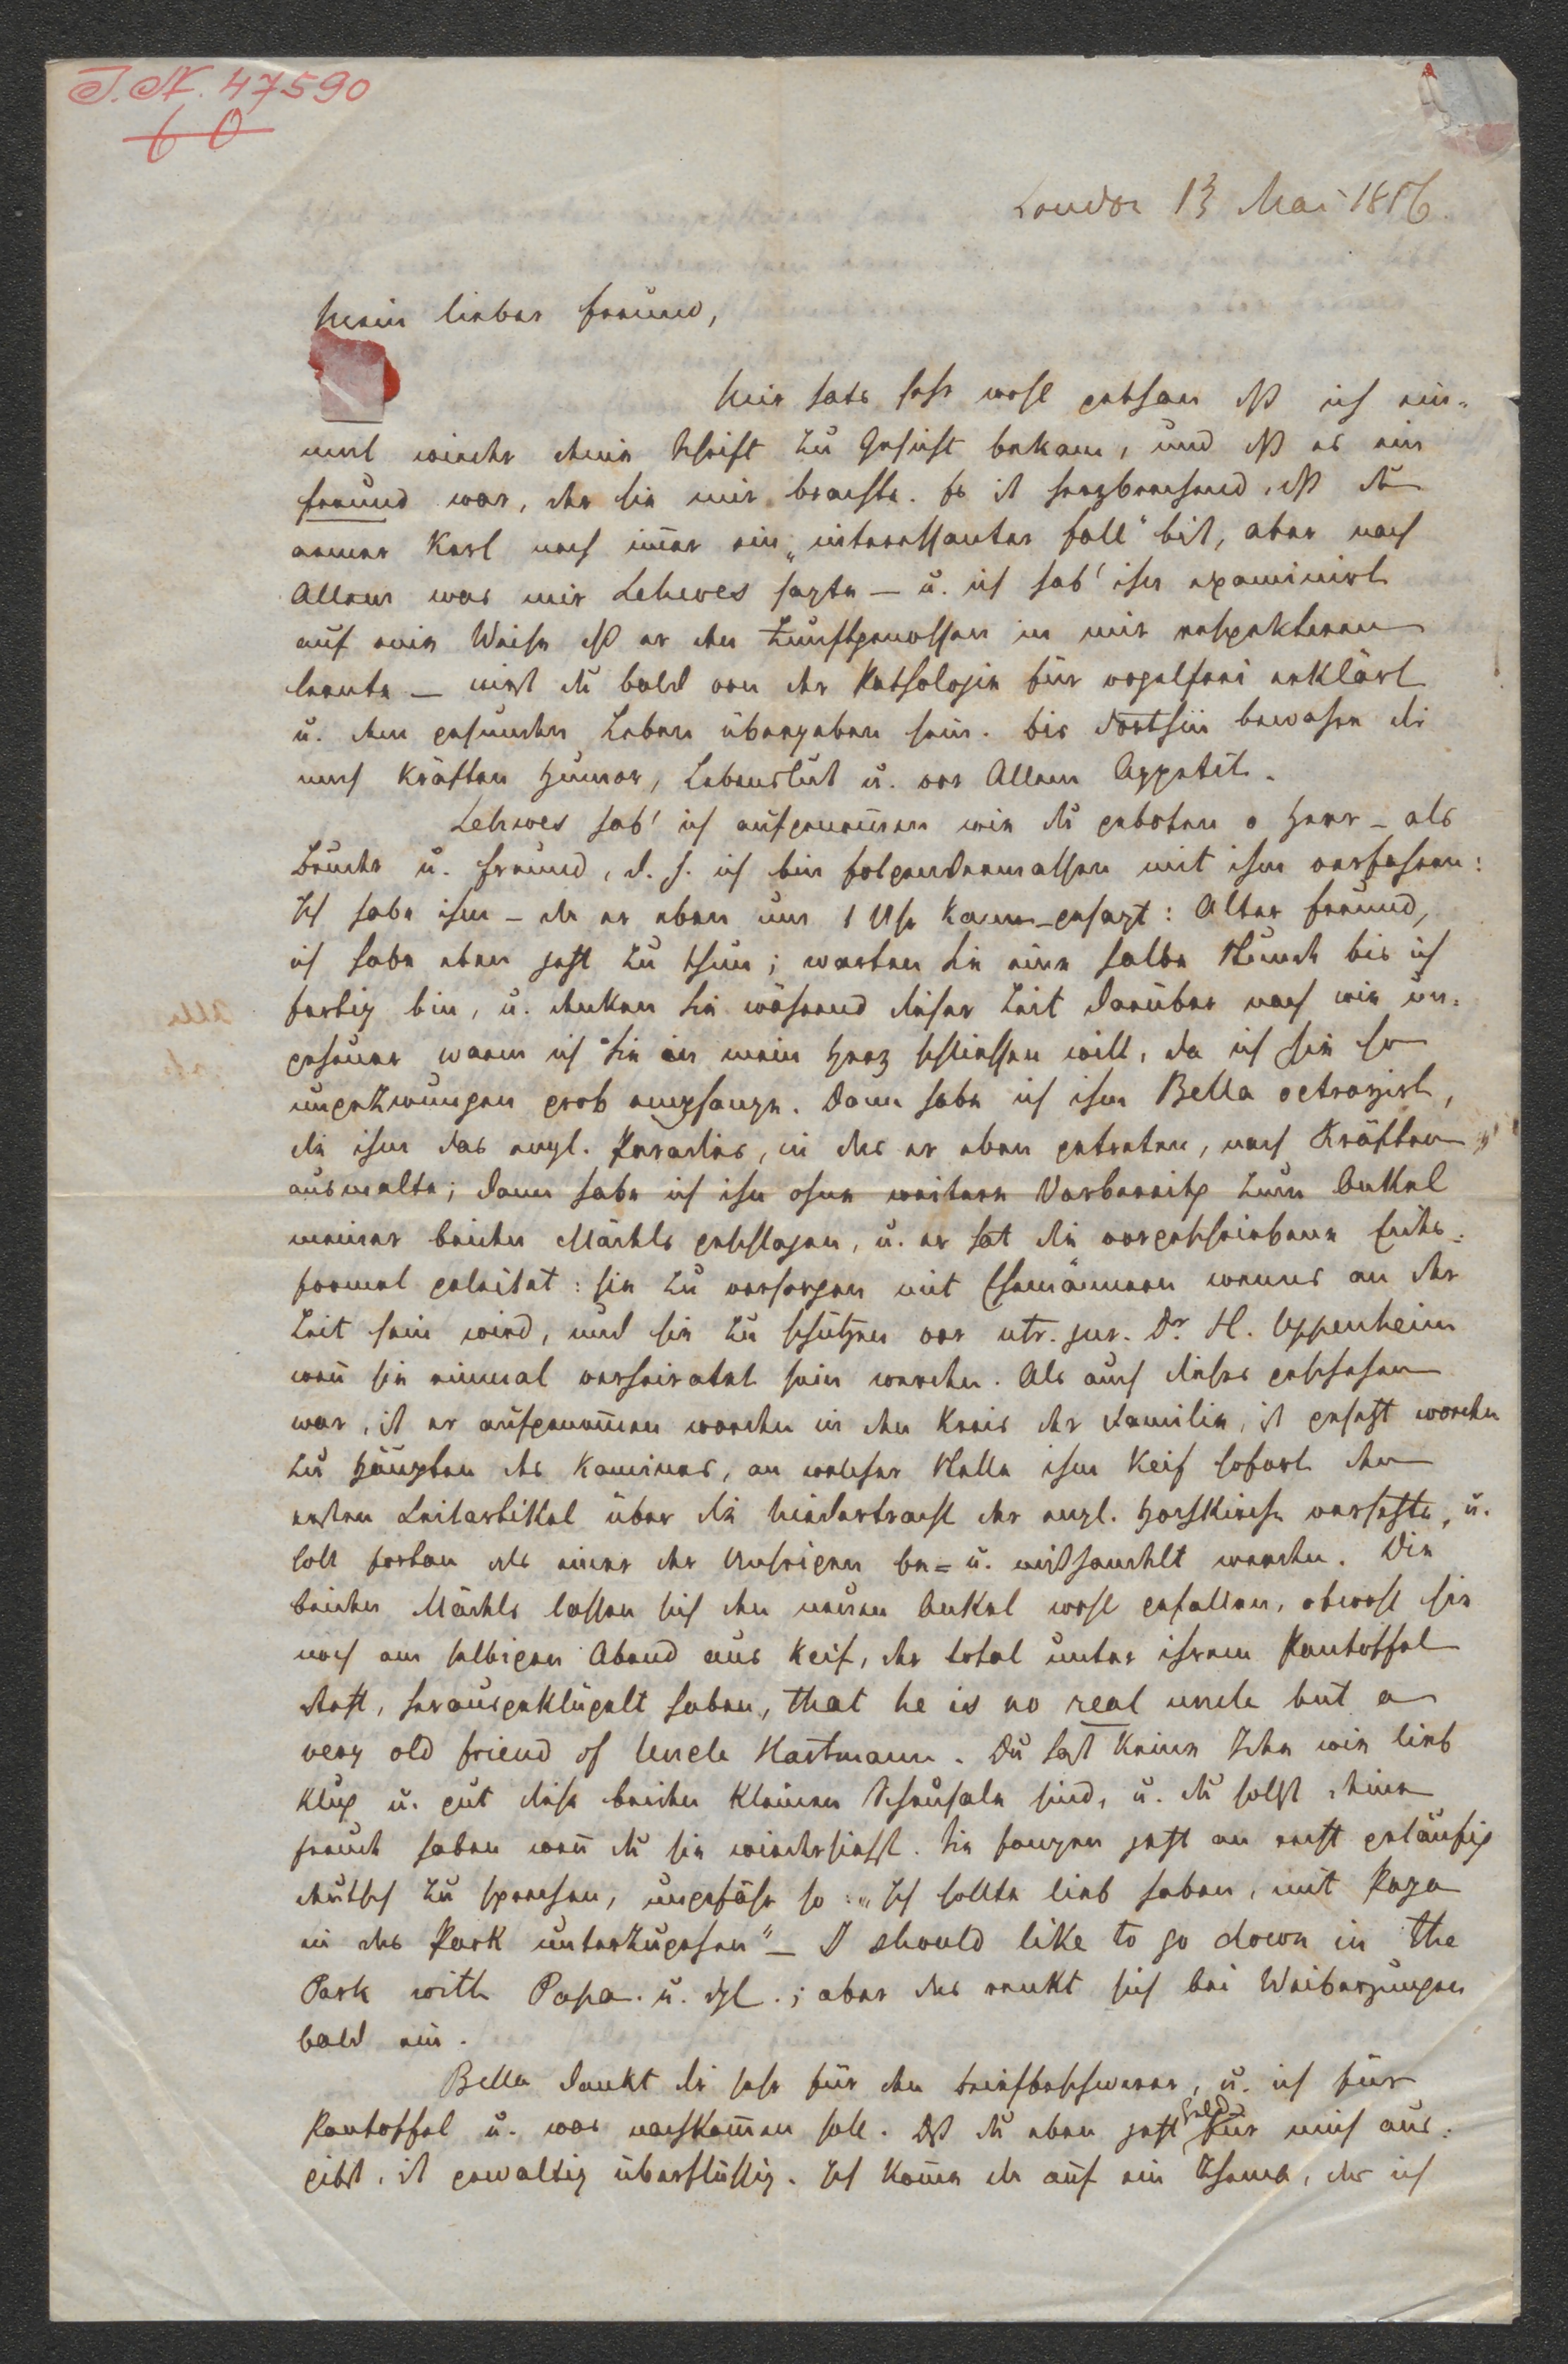 J. N. 47590
60
London 13 Mai 1856.
Mein lieber Freund,
Mir hats sehr wohl gethan dß ich ein-
mal wieder deine Schrift zu Gesicht bekam, und dß es ein
Freund war, der sie mir brachte. Es ist herzbrechend, dß du
armer Karl noch im̅er ein „interessanter Fall" bist, aber nach
Allem was mir Lehwes sagte – u. ich hab' ihn examinirt
auf eine Weise dß er den Zunftgenossen in mir respektiren
lernte – wirst du bald von der Pathologie für vogelfrei erklärt
u. dem gesunden Leben übergeben sein. Bis dorthin bewahre dir
nach Kräften Humor, Lebenslust u. vor Allem Appetit.
Lehwes hab' ich aufgenom̅en wie du geboten o Herr – als
Bruder u. Freund, d. h. ich bin folgendermassen mit ihm verfahren:
Ich habe ihm – da er eben um 1 Uhr kam – gesagt: Alter Freund,
ich habe eben jetzt zu thun; warten Sie eine halbe Stunde bis ich
fertig bin, u. denken Sie während dieser Zeit darüber nach wie un-
geheuer warm ich Sie in mein Herz schliessen will, da ich Sie so
ungezwungen grob empfange. Dann habe ich ihm Bella octroyirt,
die ihm das engl. Paradies, in das er eben getreten, nach Kräften
ausmalte; dann habe ich ihn ohne weitere Vorbereitg zum Onkel
meiner beiden Mädels geschlagen, u. er hat die vorgeschriebene Eides-
formel geleistet: sie zu versorgen mit Ehemännern wenns an der
Zeit sein wird, und sie zu schützen vor utr. jur. Dr. H. Oppenheim
wen̅ sie einmal verheiratet sein werden. Als auch dieses geschehen
war, ist er aufgenom̅en worden in den Kreis der Familie, ist gesetzt worden
zu Häupten des Kamines, an welcher Stelle ihm Keif sofort den
ersten Leitartikel über die Niedertracht der engl. Hochkirche versetzte, u.
soll fortan als einer der Unsrigen be- u. mißhandelt werden. Die
beiden Mädels lassen sich den neuen Onkel wohl gefallen, obwohl sie
noch am selbigen Abend aus Keif, der total unter ihrem Pantoffel
steht, herausgeklügelt haben, that he is no real uncle but a
very old friend of Uncle Hartmann. Du hast keine Idee wie lieb
klug u. gut diese beiden kleinen Scheusale sind, u. du sollst deine
Freude haben wen̅ du sie wiedersiehst. Sie fangen jetzt an recht geläufig
deutsch zu sprechen, ungefähr so: „Ich sollte lieb haben, mit Papa
in das Park unterzugehen" – I should like to go down in the
Park with Papa. u. dgl.; aber das renkt sich bei Weiberzungen
bald ein.
Bella dankt dir sehr für den Briefbeschwerer, u. ich für
Pantoffel u. was nachkom̅en soll. Dß du eben jetzt Geld für mich aus-
gibst, ist gewaltig überflüssig. Ich kom̅e da auf ein Thema, das ich